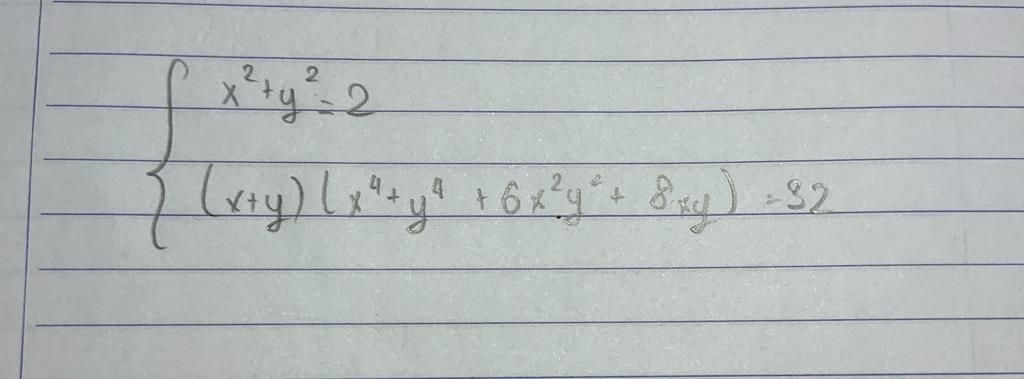 x²+y²=2
(x+y)(x⁴+y⁴+6x²y²+8xy)=32